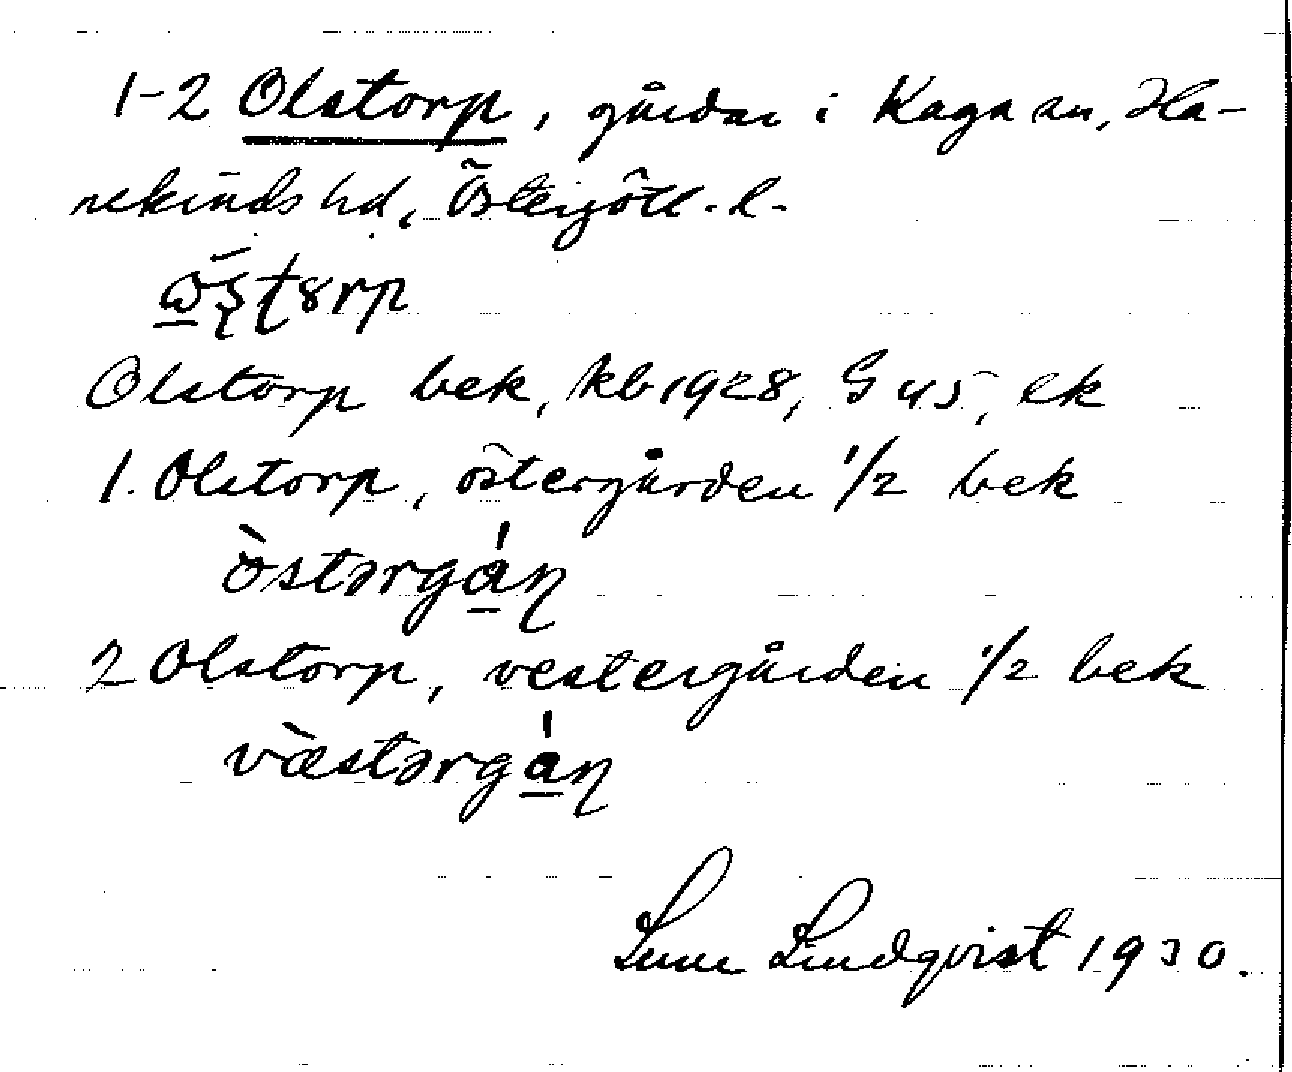 1-2 Olstorp, gårdar i Kaga sn, Ha-
nekinds hd, Östergötl. l.
Olstorp bek, kb 1928, G 45, ek
1. Olstorp, östergården 1/2 bek
östərgán
2 Olstorp, vestergården 1/2 bek
væ̀stərgán
Sune Lindqvist 1930.